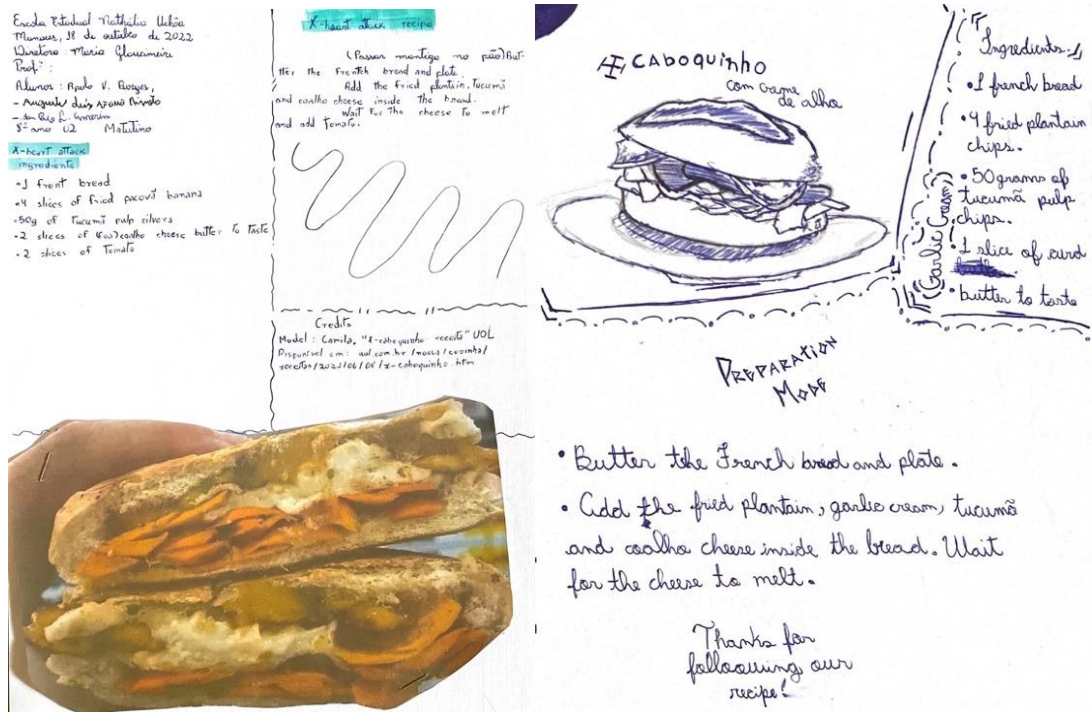 Escola Estadual Nathália Uchôa
Manaus, 18 de outubro de 2022
Diretora: Maria Glaucimeire
Profº:
Alunos: Apolo V. Borges,
- Augusto Luis
8º ano 02 Matutino
X-heart attack
ingredients
•1 frent bread
•4 slices of fried pacovã banana
•50g of Tucumã pulp silvers
•2 slices of coalho cheese butter to taste
•2 slices of Tomato
X-heart attack recipe
(Passar manteiga no pão) But-
ter the French bread and plate.
Add the fried plantain, Tucumã
and coalho cheese inside the bread.
Wait for the cheese to melt
and add Tomato.
Credits
Model: Camila, "X-caboquinho receita" UOL
Disponível em: uol.com.br/nossa/cozinha/
receitas/2021/06/08/x-caboquinho.htm
X CABOQUINHO
com creme
de alho
Ingredients:
•1 french bread
•4 fried plantain
chips.
•50 grams of
tucumã pulp
chips.
•1 slice of curd
•butter to taste
Garlic Cream
PREPARATION
MODE
•Butter the French bread and plate.
•Add the fried plantain, garlic cream, tucumã
and coalho cheese inside the bread. Wait
for the cheese to melt.
Thanks for
following our
recipe!